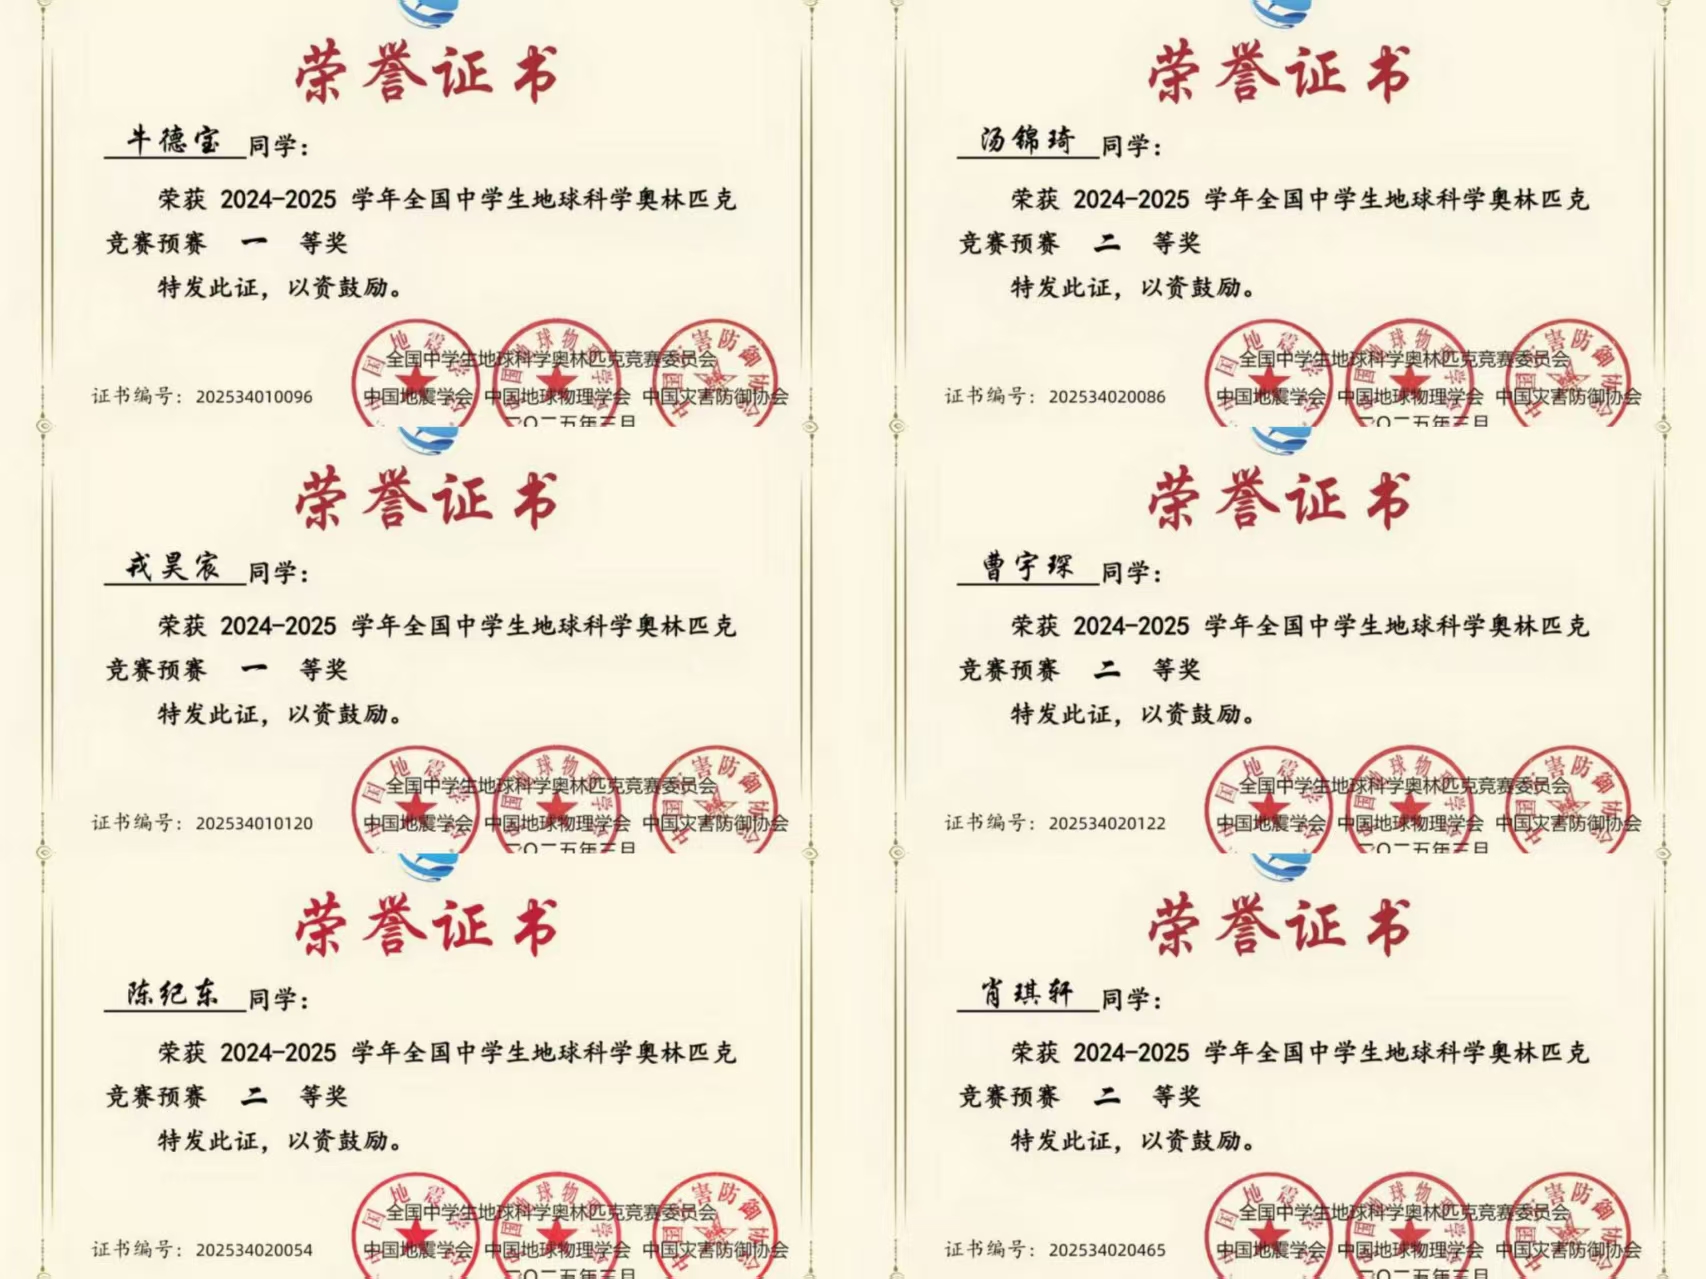 荣誉证书
牛德宝 同学：
荣获 2024-2025 学年全国中学生地球科学奥林匹克
竞赛预赛 一 等奖
特发此证，以资鼓励。
全国中学生地球科学奥林匹克竞赛委员会
证书编号：202534010096 中国地震学会 中国地球物理学会 中国灾害防御协会
二〇二五年三月
荣誉证书
汤锦琦 同学：
荣获 2024-2025 学年全国中学生地球科学奥林匹克
竞赛预赛 二 等奖
特发此证，以资鼓励。
全国中学生地球科学奥林匹克竞赛委员会
证书编号：202534020086 中国地震学会 中国地球物理学会 中国灾害防御协会
二〇二五年三月
荣誉证书
戎昊宸 同学：
荣获 2024-2025 学年全国中学生地球科学奥林匹克
竞赛预赛 一 等奖
特发此证，以资鼓励。
全国中学生地球科学奥林匹克竞赛委员会
证书编号：202534010120 中国地震学会 中国地球物理学会 中国灾害防御协会
二〇二五年三月
荣誉证书
曹宇琛 同学：
荣获 2024-2025 学年全国中学生地球科学奥林匹克
竞赛预赛 二 等奖
特发此证，以资鼓励。
全国中学生地球科学奥林匹克竞赛委员会
证书编号：202534020122 中国地震学会 中国地球物理学会 中国灾害防御协会
二〇二五年三月
荣誉证书
陈纪东 同学：
荣获 2024-2025 学年全国中学生地球科学奥林匹克
竞赛预赛 二 等奖
特发此证，以资鼓励。
全国中学生地球科学奥林匹克竞赛委员会
证书编号：202534020054 中国地震学会 中国地球物理学会 中国灾害防御协会
二〇二五年三月
荣誉证书
肖琪轩 同学：
荣获 2024-2025 学年全国中学生地球科学奥林匹克
竞赛预赛 二 等奖
特发此证，以资鼓励。
全国中学生地球科学奥林匹克竞赛委员会
证书编号：202534020465 中国地震学会 中国地球物理学会 中国灾害防御协会
二〇二五年三月